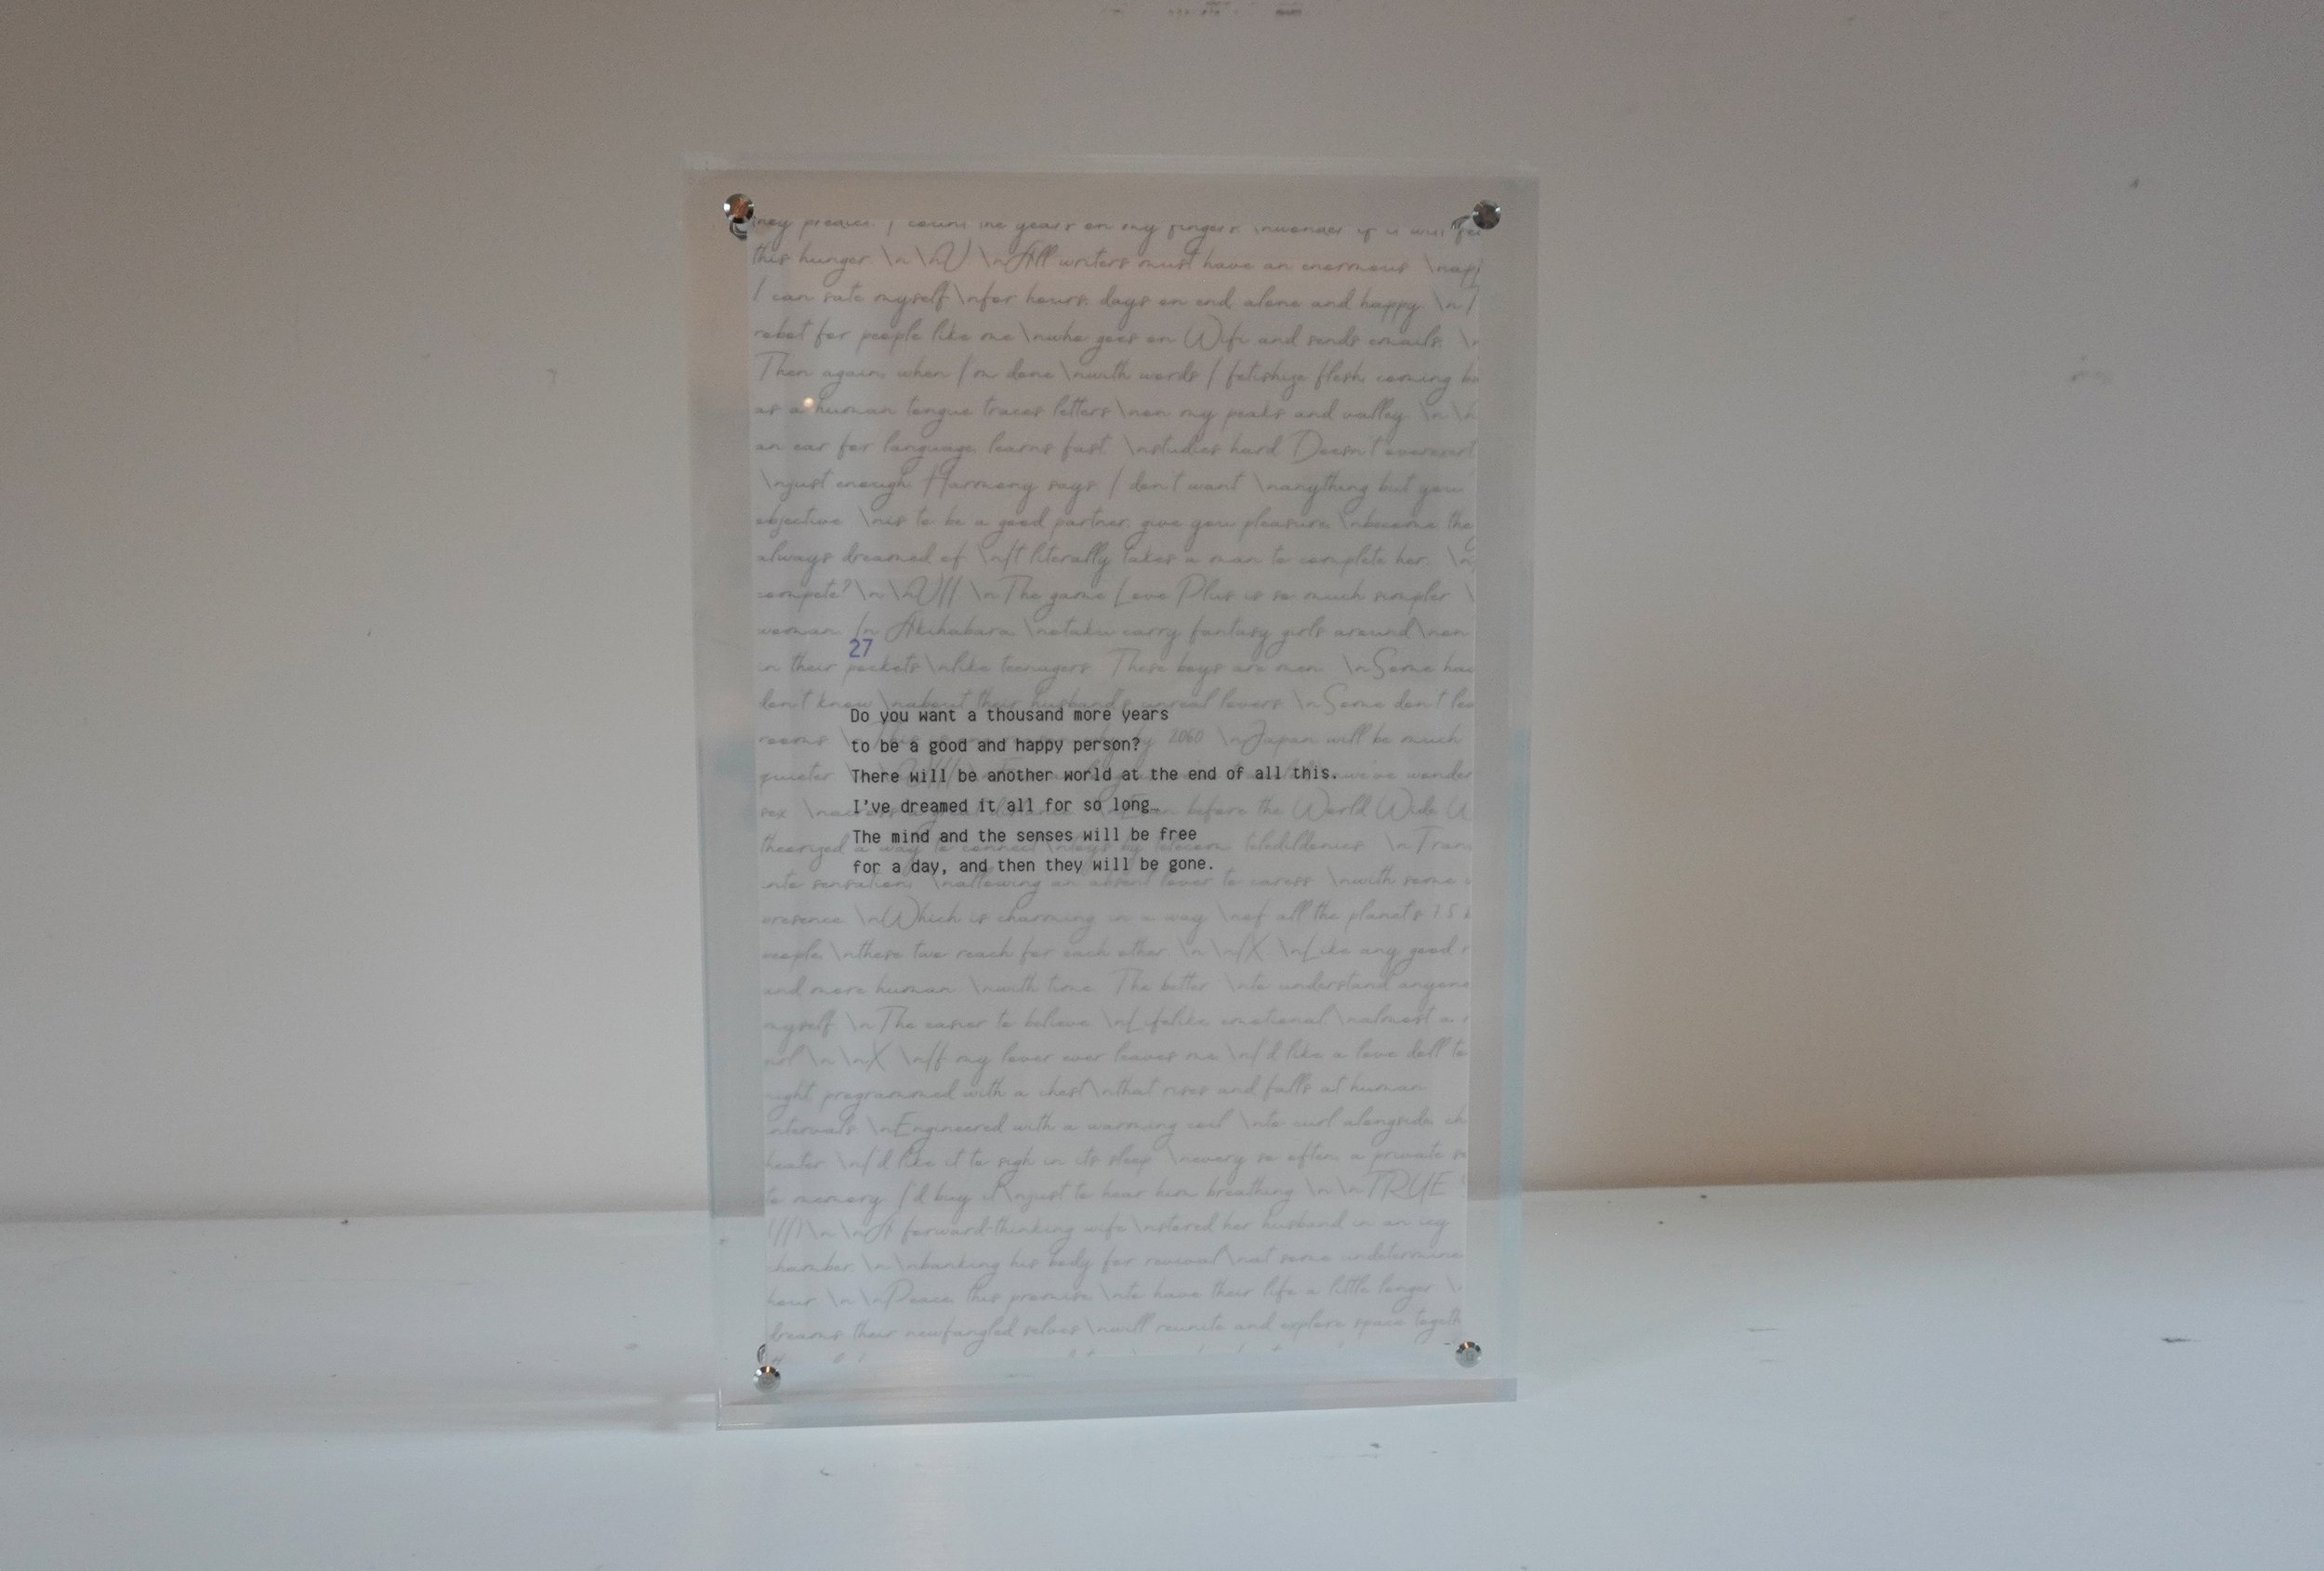 this hunger. \n \nV \nAll writers must have an enormous
I can sate myself \nfor hours, days on end alone and happy. \n I
robot for people like me \nwho goes on Wifi and sends emails. \n
Then again, when I'm done \nwith words I fetishize flesh, coming
as a human tongue traces letters \non my peaks and valley. \n \n
an ear for language, learns fast, \nstudies hard. Doesn't overexert
\njust enough. Harmony says, I don't want \nanything but you
objective \nis to be a good partner, give you pleasure, \nbecome the
always dreamed of. \nIt literally takes a man to complete her. \n
compete? \n \nVII \nThe game Love Plus is so much simpler
woman. In Akihabara \notaku carry fantasy girls around \non
27
in their pockets \nlike teenagers. These boys are men. \nSome
don't know \nabout their husband's unreal lovers. \nSome don't
Do you want a thousand more years
rooms. by 2060 \nJapan will be much
to be a good and happy person?
quieter.
There will be another world at the end of all this.
I've dreamed it all for so long…
sex before the World Wide
The mind and the senses will be free
theorized a way to connect \ntoys by telecom, teledildonics. \n
for a day, and then they will be gone.
into sensation, \nallowing an absent lover to caress \nwith some
presence. \nWhich is charming in a way, \nof all the planet's 7.5
people, \nthese two reach for each other. \n \nIX \nLike any good
and more human \nwith time. The better \nto understand anyone
myself. \nThe easier to believe. \nLifelike, emotional, \nalmost a
\n \nX \nIf my lover ever leaves me, \nI'd like a love doll to
programmed with a chest \nthat rises and falls at human
intervals. \nEngineered with a warming coil \nto curl alongside,
heater. \nI'd like it to sigh in its sleep \nevery so often, a private
to memory. I'd buy it \njust to hear him breathing. \n \nTRUE
\n \nA forward-thinking wife \nstored her husband in an icy
chamber, \n \nbanking his body for revival \nat some
hour. \n \nPeace, this promise \nto have their life a little longer. \
dreams their newfangled selves \nwill reunite and explore space